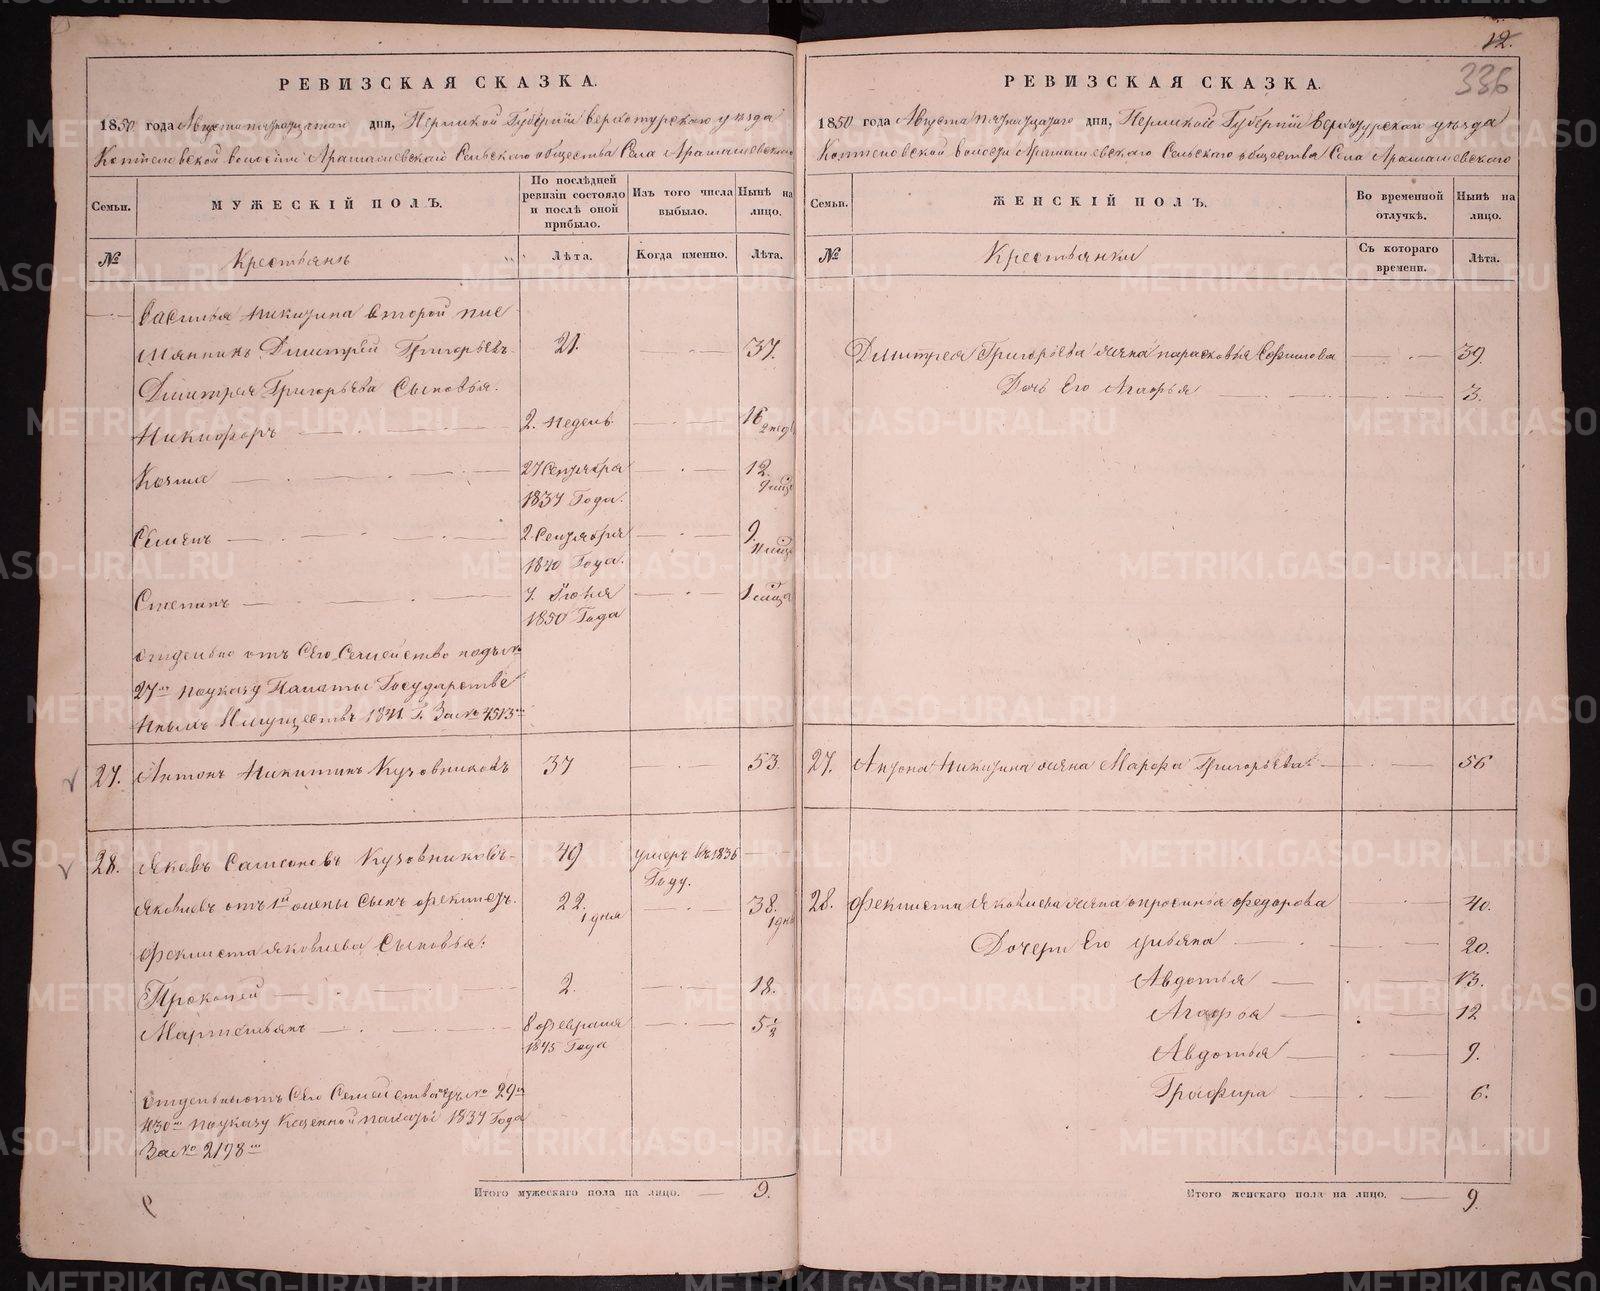 12.
336
РЕВИЗСКАЯ СКАЗКА.
1850 года Августа пятнадцатаго дня, Пермской Губерніи Верхотурскаго уѣзда
Коптеловской волости Арамашевскаго Сельскаго общества Села Арамашевскаго
Семьи.
МУЖЕСКІЙ ПОЛЪ.
По послѣдней ревизіи состояло и послѣ оной прибыло.
Изъ того числа выбыло.
Нынѣ на лицо.
№
Крестьянъ
Лѣта.
Когда именно.
Лѣта.
Василья Никитина второй пле
мянникъ Дмитрей Григорьевъ 21. 37.
Дмитрея Григорьева Сыновья.
Никифоръ 2. недель 16 2 нед
Козма 27 Сентября 12.
1837 Года.
Семенъ 2 Сентября 9. 11 мцо
1840 Года.
Степанъ 7. Іюня 1 мцо
1850 Года
отдельно отъ Сего Семейство подъ №
27м по указу Палаты Государстве
нныхъ Имуществъ 1841 Г. За № 4513
27. Антонъ Никитинъ Кузовниковъ 37 53.
28. Яковъ Самсоновъ Кузовниковъ 49 умеръ въ 1836
Году.
Яковлевъ отъ 1й жены Сынъ Феклистъ. 22. 1 дня 38. 1 дня
Фекписта Яковлева Сыновья:
Прокопей 2. 18.
Мартемьянъ 8 февраля 5 1/2
1845 Года
Сего Семейства подъ № 29
и 30 по указу Казенной палаты 1837 Года
За № 2198
Итого мужескаго пола на лицо. 9.
РЕВИЗСКАЯ СКАЗКА.
1850 года Августа пятнадцатаго дня, Пермской Губерніи Верхотурскаго уѣзда
Коптеловской волости Арамашевскаго Сельскаго общества Села Арамашевскаго
Семьи.
ЖЕНСКІЙ ПОЛЪ.
Во временной отлучкѣ.
Нынѣ на лицо.
№
Крестьянки
Съ котораго времени.
Лѣта.
Дмитрея Григорьева жена Парасковья Софонова 39.
Дочь Его Агафья 3.
27. Антона Никитина жена Марфа Григорьева 56
28. Феклиста Яковлева жена Апросинья Федорова 40.
Дочери Его Ульяна 20.
Авдотья 13.
Агафья 12
Авдотья 9.
Глафира 6.
Итого женскаго пола на лицо. 9.
METRIKI.GASO-URAL.RU